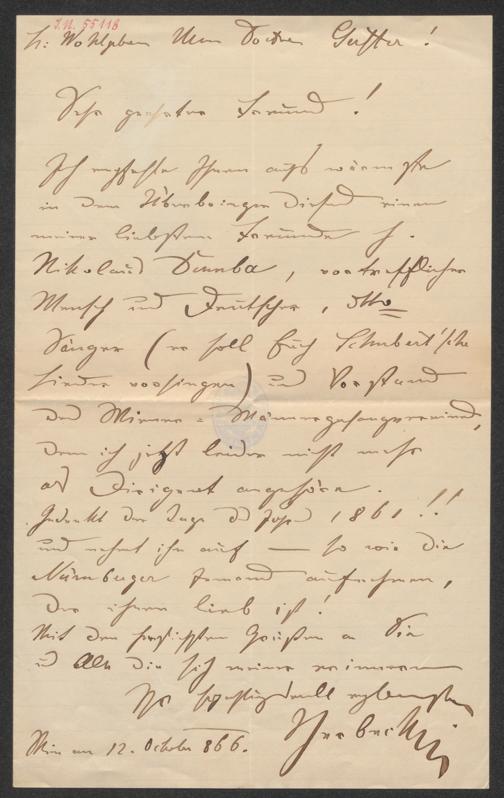 I.N. 55118
Sr: Wohlgeboren Herrn Doctor Gerster!
Sehr geehrter Freund!
Ich empfehle Ihnen aufs wärmste
in dem Überbringer dieses einen
meiner liebsten Freunde H.
Nikolaus Dumba, vortrefflicher
Mensch und Deutscher, dtto
Sänger (er soll Euch Schubert'sche
Lieder vorsingen) und Vorstand
des Wiener-Männergesangvereines,
dem ich jetzt leider nicht mehr
als Dirigent angehöre.
Gedenkt der Tage des Jahres 1861!!
und nehmt ihn auf — so wie die
Nürnberger Jemand aufnehmen,
der ihnen lieb ist!
Mit den herzlichsten Grüßen an Sie
u Alle die sich meiner erinnern
Ihr hochachtungsvoll ergebenster
Herbeck
Wien am 12. October 866.